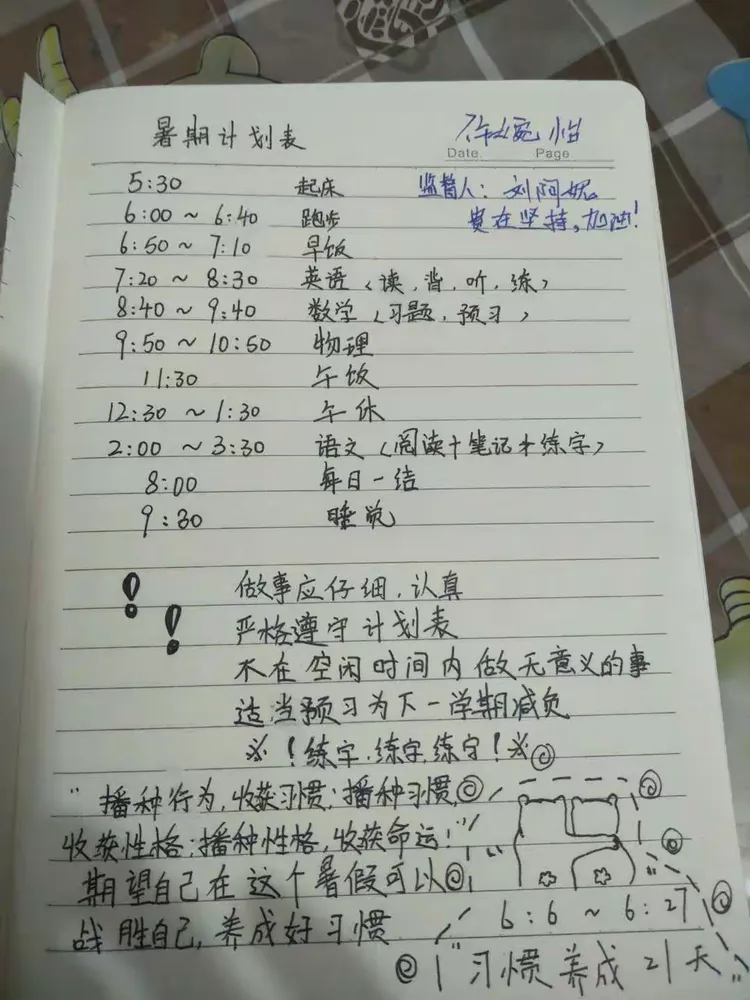 暑期计划表
徐婉怡
Date. Page
5:30 起床 监督人: 刘阿妮
6:00 ~ 6:40 跑步 贵在坚持,加油!
6:50 ~ 7:10 早饭
7:20 ~ 8:30 英语(读、背、听、练)
8:40 ~ 9:40 数学(习题、预习)
9:50 ~ 10:50 物理
11:30 午饭
12:30 ~ 1:30 午休
2:00 ~ 3:30 语文(阅读+笔记+练字)
8:00 每日一结
9:30 睡觉
! 做事应仔细、认真
! 严格遵守计划表
不在空闲时间内做无意义的事
适当预习为下一学期减负
※!练字、练字、练字!※
"播种行为,收获习惯;播种习惯,
收获性格;播种性格,收获命运!"
期望自己在这个暑假可以
战胜自己,养成好习惯
6:6 ~ 6:27
"习惯养成21天"